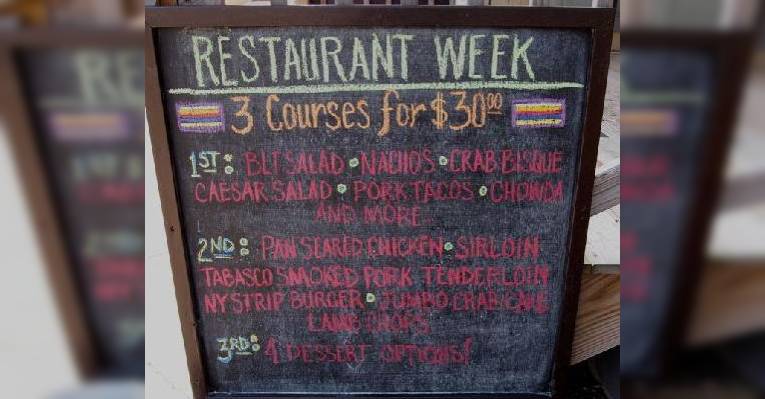 RESTAURANT WEEK
3 Courses for $30⁰⁰
1ST: BLT SALAD • NACHOS • CRAB BISQUE
CAESAR SALAD • PORK TACOS • CHOWDA
AND MORE
2ND: PAN SEARED CHICKEN • SIRLOIN
TABASCO SMOKED PORK TENDERLOIN
NY STRIP BURGER • JUMBO CRAB CAKE
LAMB CHOPS
3RD: 4 DESSERT OPTIONS!